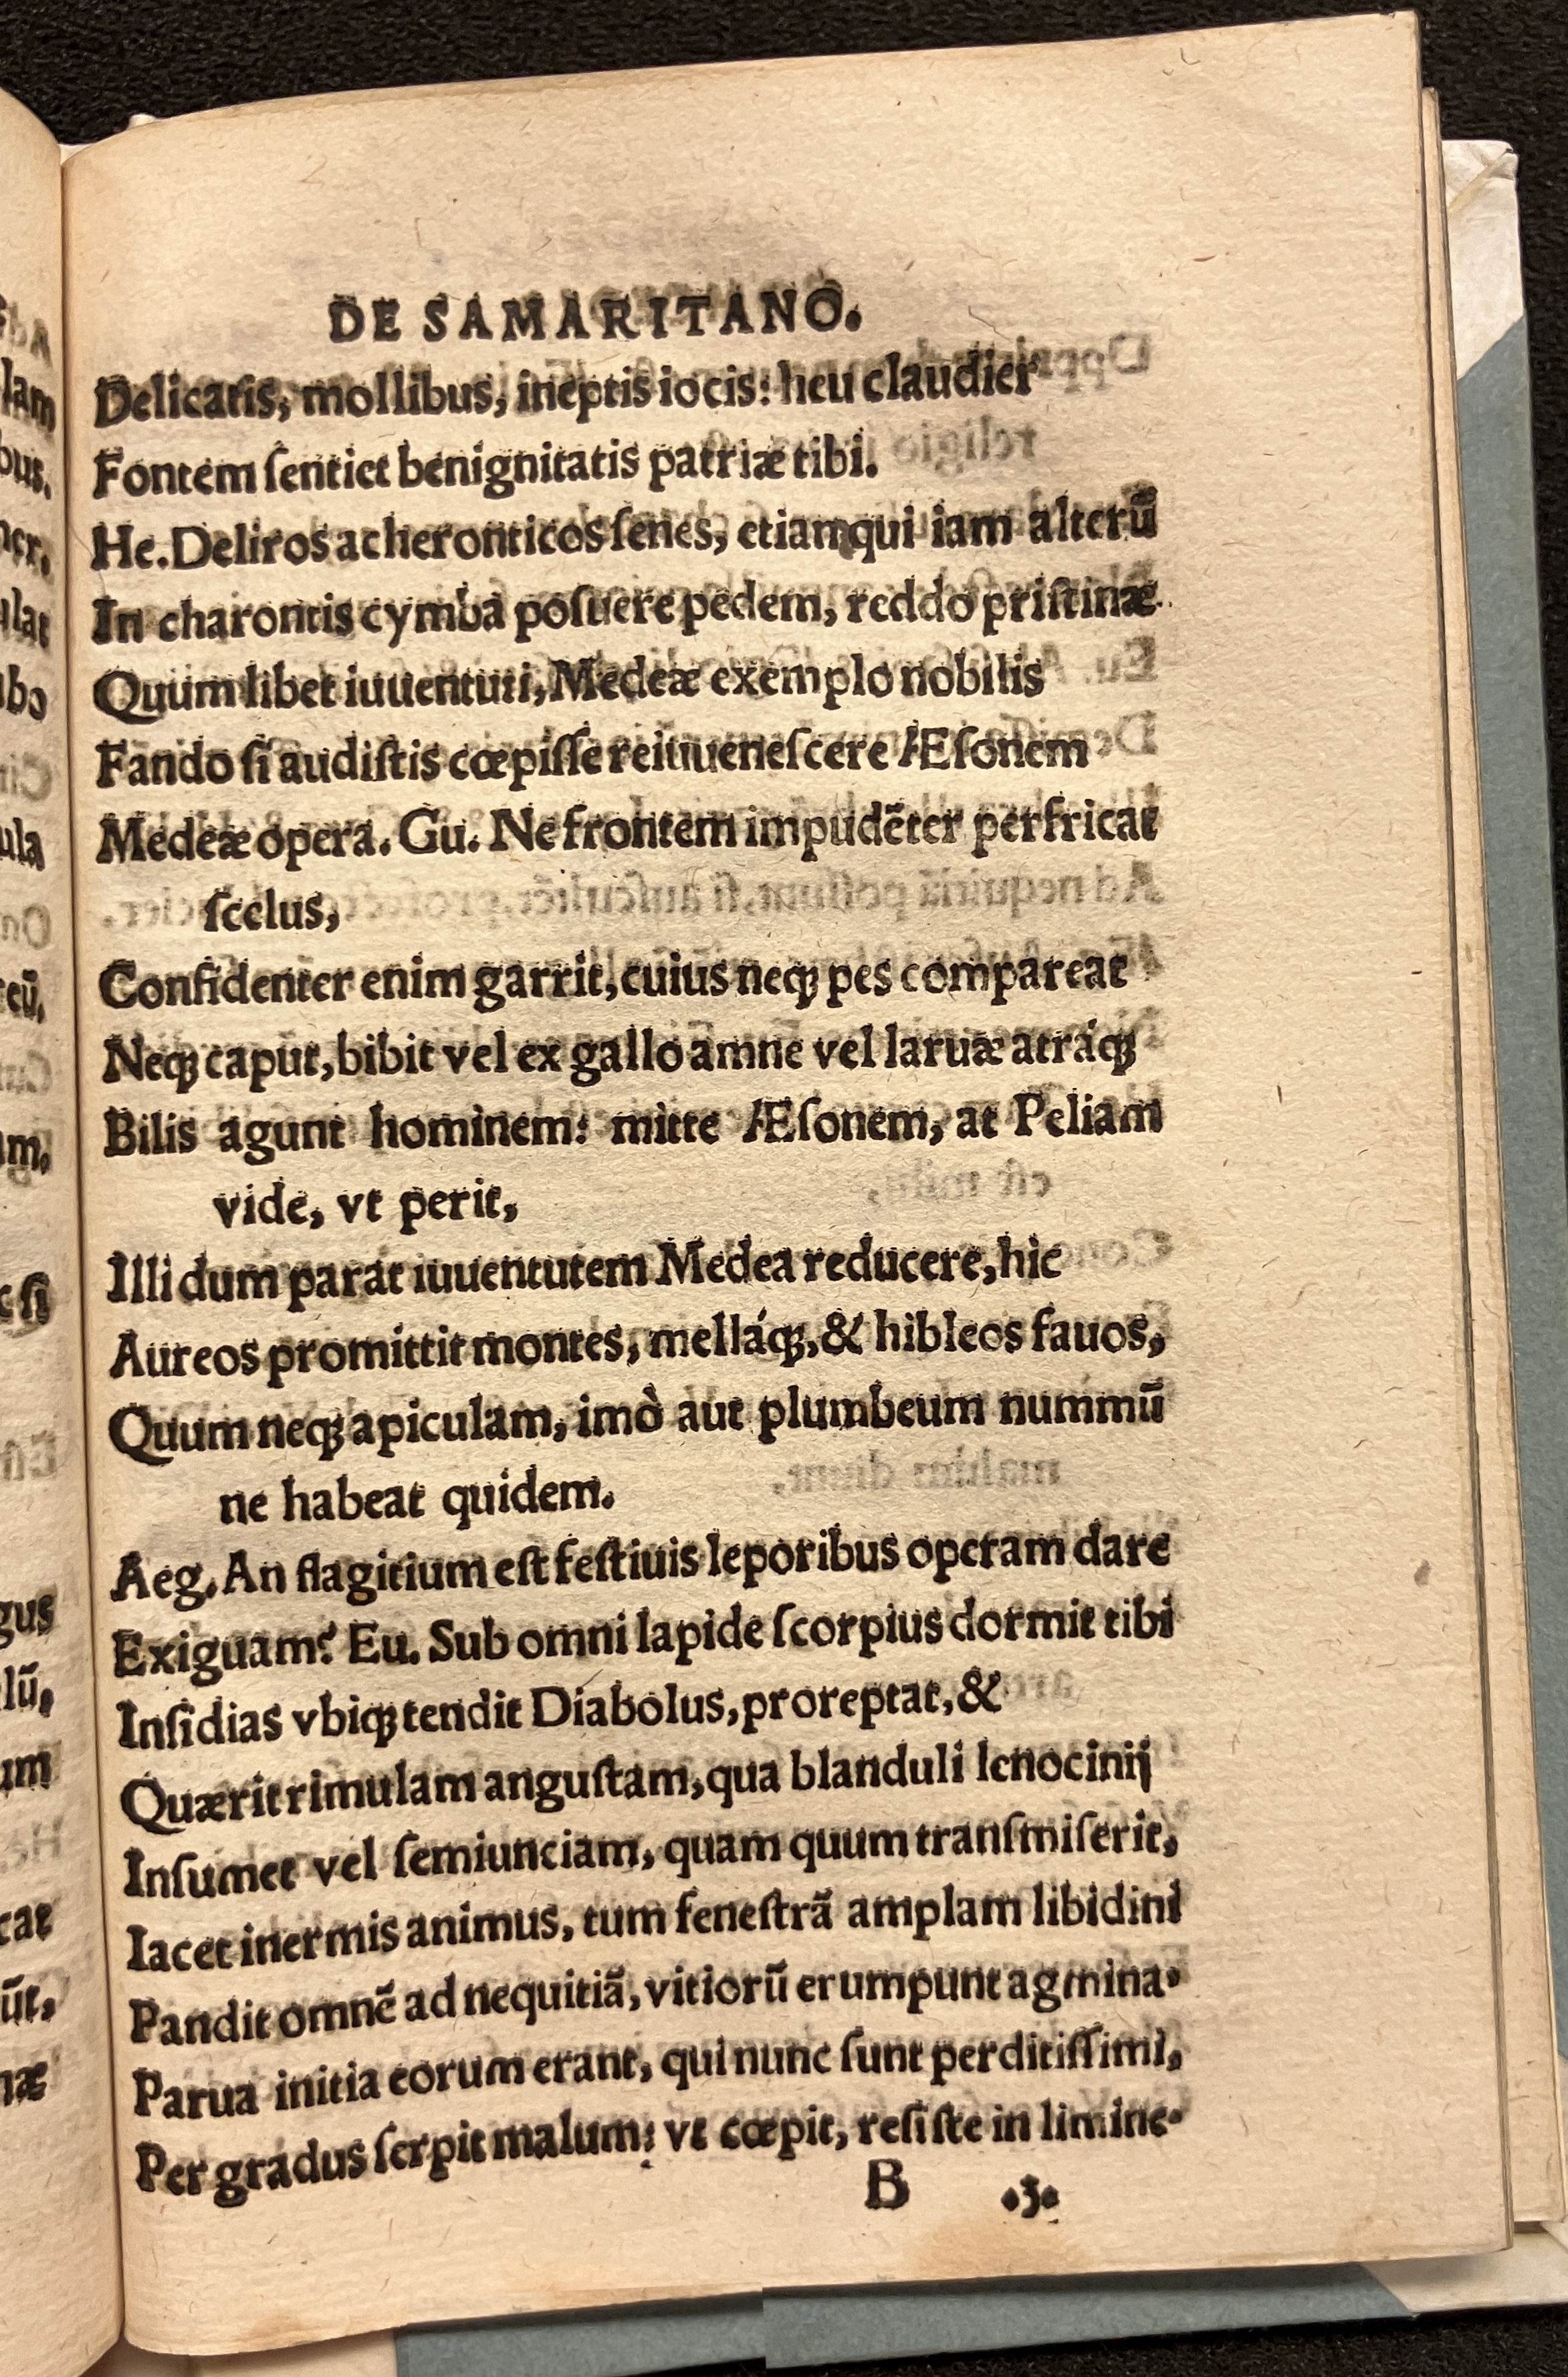 DE SAMARITANO.
Delicatis, mollibus, ineptis iocis: heu claudier
Fontem ſentiet benignitatis patriæ tibi.
He. Deliros acheronticos ſenes, etiam qui iam alterũ
In charontis cymba poſuere pedem, reddo priſtinæ
Quum libet iuuentuti, Medeæ exemplo nobilis
Fando ſi audiſtis cœpiſſe reiuueneſcere Æſonem
Medeæ opera. Gu. Ne frontem impudẽter perfricat
ſcelus,
Confidenter enim garrit, cuius neqꝫ pes compareat
Neqꝫ caput, bibit vel ex gallo amne vel laruæ atráqꝫ
Bilis agunt hominem: mitte Æſonem, at Peliam
vide, vt perit,
Illi dum parat iuuentutem Medea reducere, hic
Aureos promittit montes, melláqꝫ, & hibleos fauos,
Quum neqꝫ apiculam, imò aut plumbeum nummũ
ne habeat quidem.
Aeg. An flagitium eſt feſtiuis leporibus operam dare
Exiguam? Eu. Sub omni lapide ſcorpius dormit tibi
Inſidias vbiqꝫ tendit Diabolus, proreptat, &
Quærit rimulam anguſtam, qua blanduli lenocinij
Inſumet vel ſemiunciam, quam quum tranſmiſerit,
Iacet inermis animus, tum feneſtrã amplam libidini
Pandit omnẽ ad nequitiã, vitiorũ erumpunt agmina.
Parua initia eorum erant, qui nunc ſunt perditiſſimi,
Per gradus ſerpit malum: vt cœpit, reſiſte in limine.
B .3.